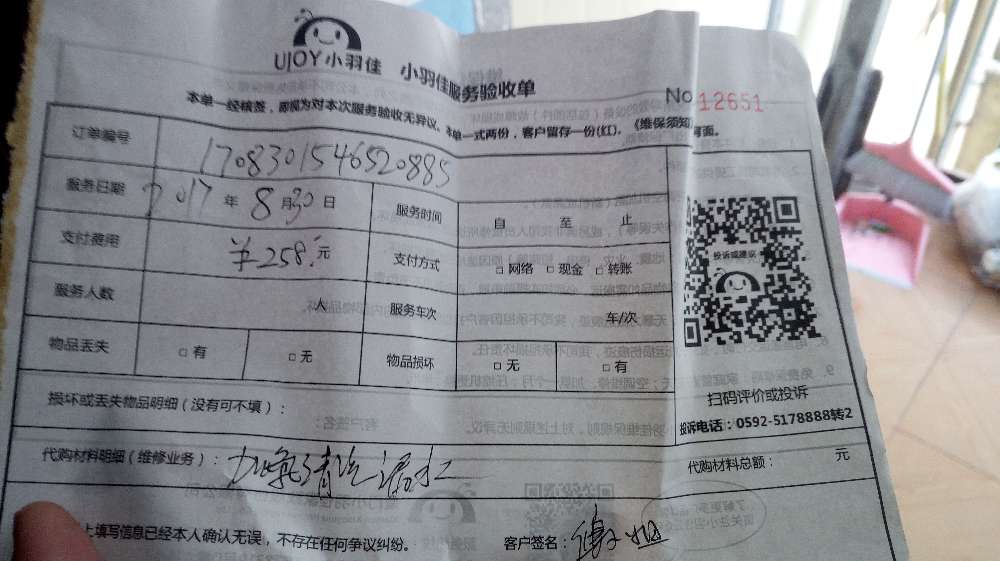 UJOY小羽佳 小羽佳服务验收单
No 12651
本单一经核签，即视为对本次服务验收无异议。本单一式两份，客户留存一份(红)。《维保须知》背面。
订单编号 1708301546520885
服务日期 2017年8月30日 服务时间 自 至 止
支付费用 ¥258.元 支付方式 □网络 □现金 □转账
服务人数 人 服务车次 车/次
物品丢失 □有 □无 物品损坏 □无 □有
投诉或建议
扫码评价或投诉
投诉电话：0592-5178888转2
损坏或丢失物品明细（没有可不填）：
代购材料明细（维修业务）：加氟清洗漏水
代购材料总额： 元
上填写信息已经本人确认无误，不存在任何争议纠纷。 客户签名：